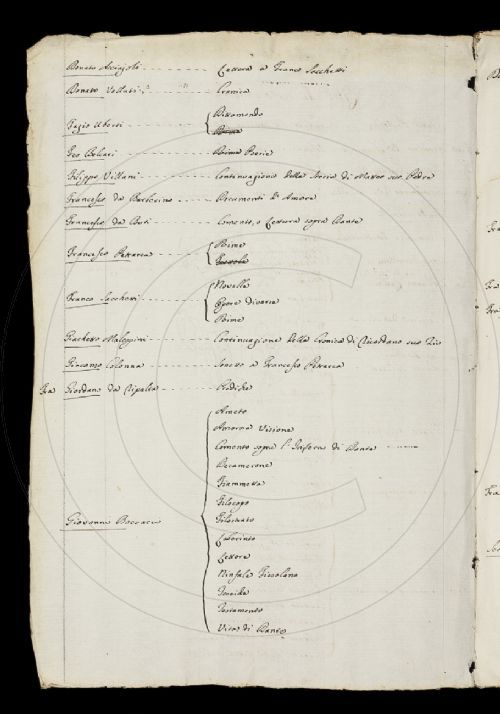 Donato Acciajoli - - - - Lettera a Franco Sacchetti
Donato Velluti - - - - Cronica
Fazio Uberti - - - - Dittamondo
Rime
Feo Belcari - - - - Rime
Filippo Villani - - - - Continuazione della Storia di Matteo suo Padre
Francesco da Barberino - - - - Documenti d'Amore
Francesco da Buti - - - - Comento, o Lettura sopra Dante
Francesco Petrarca - - - - Rime
Franco Sacchetti - - - - Novelle
Opere diverse
Rime
Giachetto Malespini - - - - Continuazione della Cronica di Ricordano suo Zio
Giacomo Colonna - - - - Sonetto a Francesco Petrarca
Fra Giordano da Ripalta - - - - Prediche
Ameto
Amorosa Visione
Comento sopra l'Inferno di Dante
Decamerone
Fiammetta
Filocopo
Filostrato
Giovanni Boccaccio
Laberinto
Lettere
Ninfale Fiesolano
Teseide
Testamento
Vita di Dante